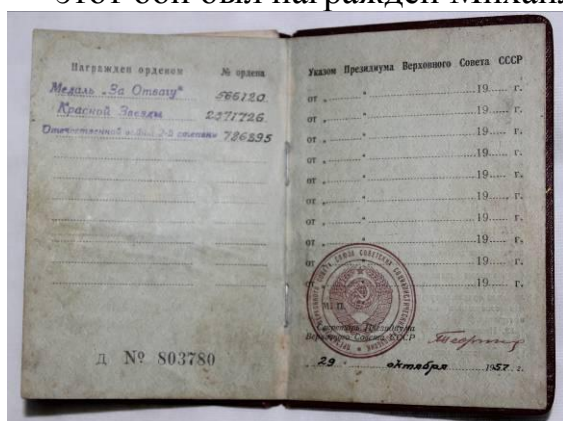 этот бой был награжден Михаил
Награжден орденом № ордена
Медаль „За Отвагу“ 566120.
Красной Звезды 2371726.
Отечественной войны 2-й степени 726895
Д № 803780
Указом Президиума Верховного Совета СССР
от „ “ 19 г.
от „ “ 19 г.
от „ “ 19 г.
от „ “ 19 г.
от „ “ 19 г.
от „ “ 19 г.
от „ “ 19 г.
от „ “ 19 г.
от „ “ 19 г.
М. П.
Секретарь Президиума
Верховного Совета СССР
29 октября 1957 г.